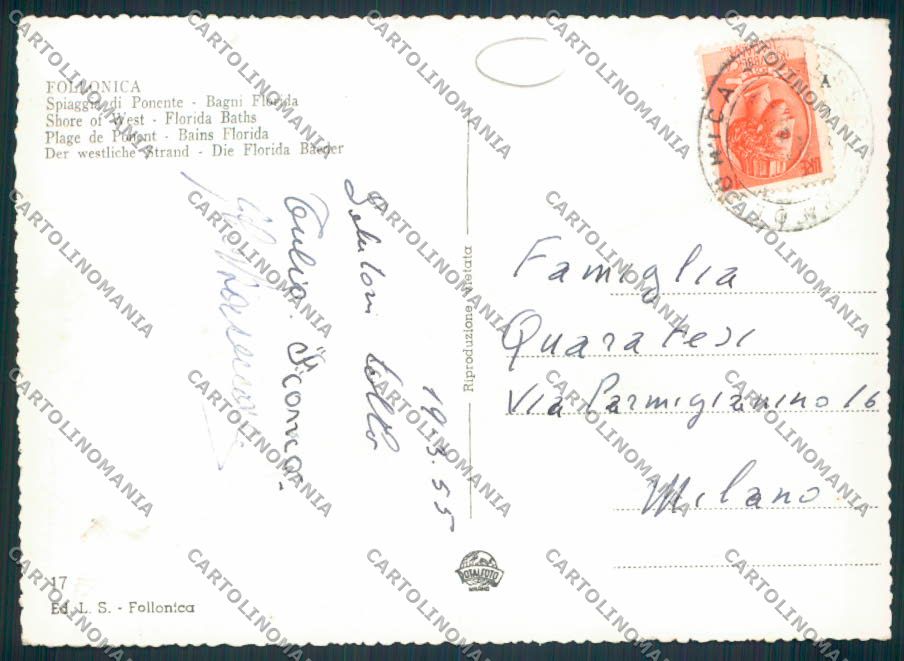 FOLLONICA
Spiaggia di Ponente - Bagni Florida
Shore of West - Florida Baths
Plage de Ponent - Bains Florida
Der westliche Strand - Die Florida Baeder
19.3.55
Saluton
Tulio
Riproduzione vietata
LIRE
Famiglia
Quaratesi
Via Parmigianino 16
Milano
TOTALFOTO
MILANO
17
Ed. L. S. - Follonica
CARTOLINOMANIA